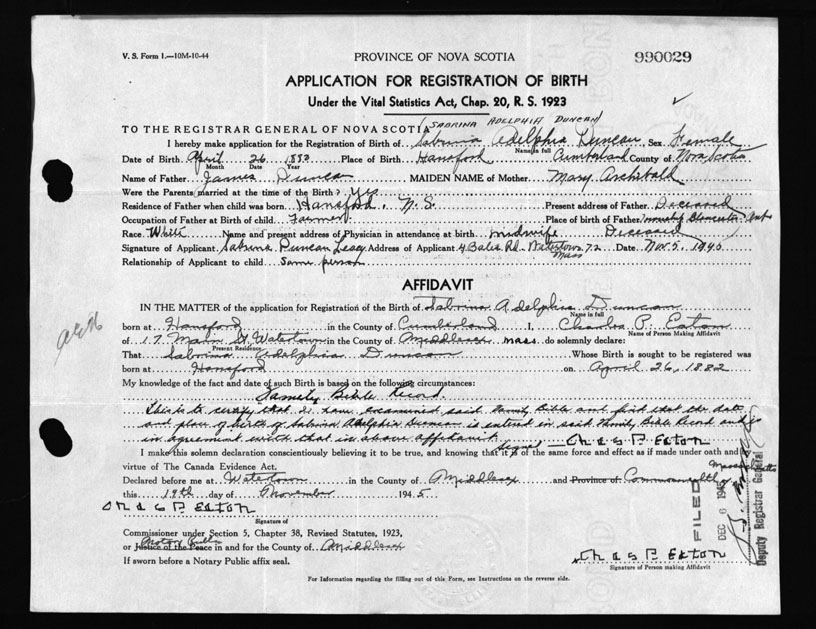 V. S. Form 1.—10M-10-44 PROVINCE OF NOVA SCOTIA 990029
APPLICATION FOR REGISTRATION OF BIRTH
Under the Vital Statistics Act, Chap. 20, R. S. 1923
(SABRINA ADELPHIA DUNCAN)
TO THE REGISTRAR GENERAL OF NOVA SCOTIA
I hereby make application for the Registration of Birth of Sabrina Adelphia Duncan Sex Female
Name in full
Date of Birth April 26 1882 Place of Birth Hansford Cumberland County of Nova Scotia
Month Date Year
Name of Father James Duncan MAIDEN NAME of Mother Mary Archibald
Were the Parents married at the time of the Birth? Yes
Residence of Father when child was born Hansford, N.S. Present address of Father Deceased
Occupation of Father at Birth of child Farmer Place of birth of Father
Race White Name and present address of Physician in attendance at birth midwife Deceased
Signature of Applicant Sabrina Duncan Address of Applicant 4 Rd. Watertown 72 Mass Date Nov 5 1945
Relationship of Applicant to child Same person
AFFIDAVIT
IN THE MATTER of the application for Registration of the Birth of Sabrina Adelphia Duncan
Name in full
born at Hansford in the County of Cumberland I, Charles P. Eaton
Name of Person Making Affidavit
of 17 Main St Watertown in the County of Middlesex Mass. do solemnly declare:
Present Residence
That Sabrina Adelphia Duncan Whose Birth is sought to be registered was
born at Hansford on April 26, 1882
My knowledge of the fact and date of such Birth is based on the following circumstances:
Family Bible Record.
This is to certify that I have examined said Family Bible and find that the date
and place of birth of Sabrina Adelphia Duncan is entered in said Family Bible Record and is
in agreement with that in above affidavit.
Signed Chas P. Eaton
I make this solemn declaration conscientiously believing it to be true, and knowing that it is of the same force and effect as if made under oath and
virtue of The Canada Evidence Act.
Declared before me at Watertown in the County of Middlesex and Province of Commonwealth of Massachusetts
this 19th day of November 1945
Chas P. Eaton
Signature of
Commissioner under Section 5, Chapter 38, Revised Statutes, 1923,
Notary Public
or Justice of the Peace in and for the County of Middlesex
If sworn before a Notary Public affix seal.
Chas P. Eaton
Signature of Person making Affidavit
For Information regarding the filling out of this Form, see Instructions on the reverse side.
FILED
DEC 6 1945
Deputy Registrar General